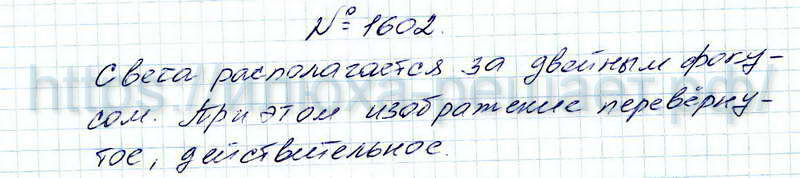 № 1602.
Света располагается за двойным фоку-
сом. При этом изображение перевёрну-
тое, действительное.